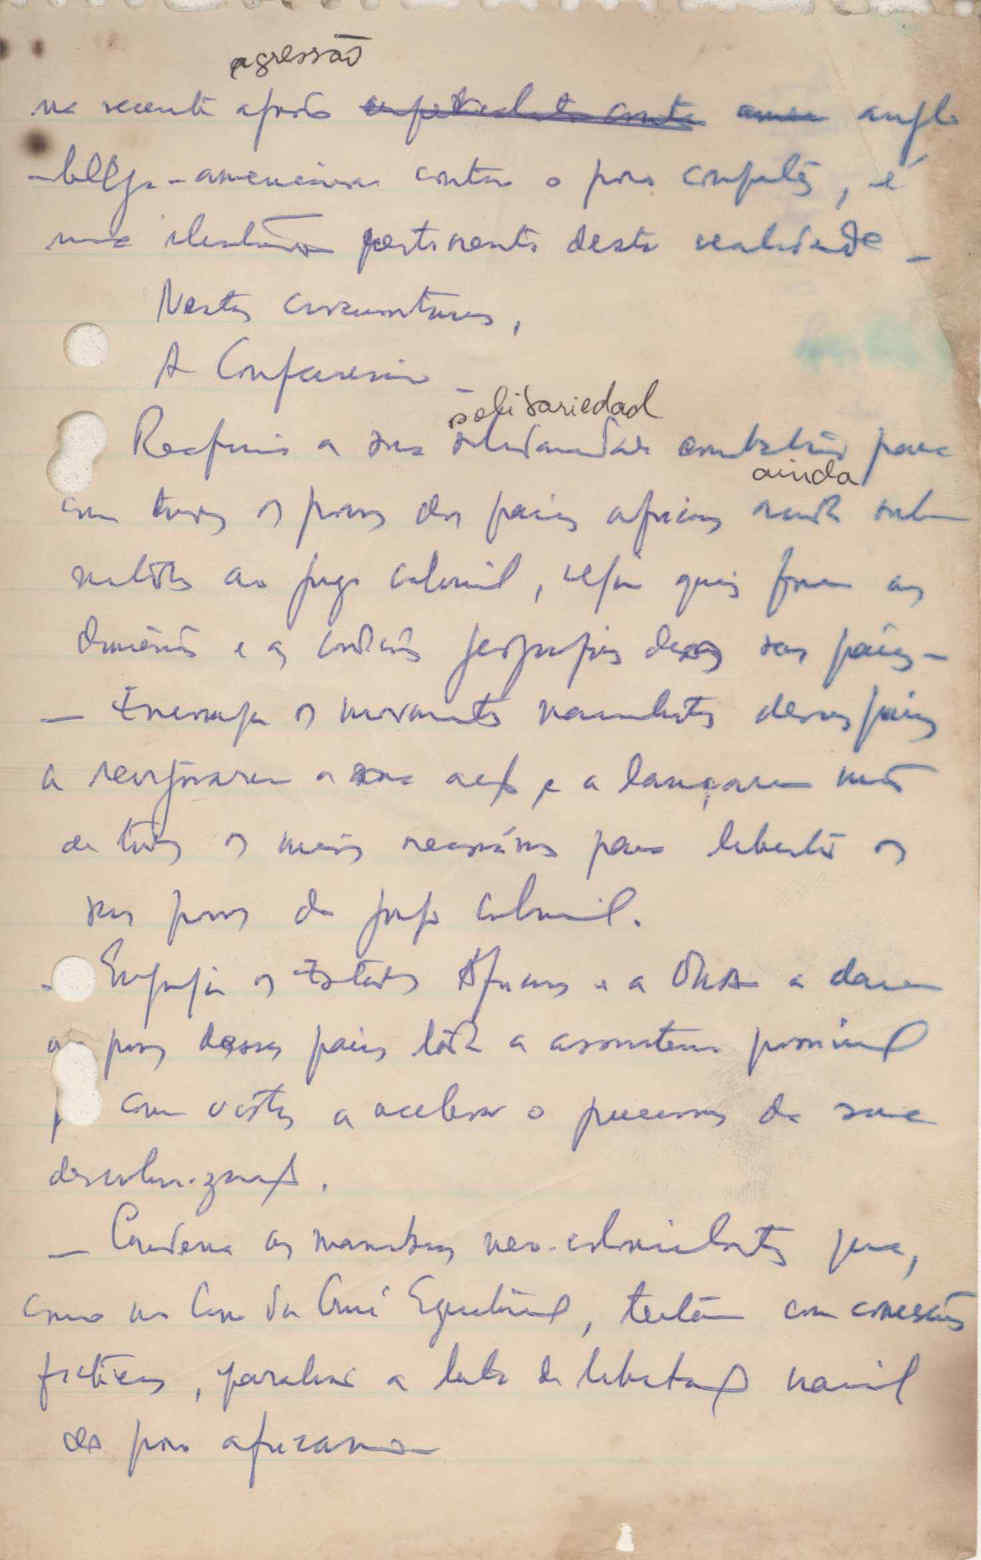 agressão
na recente agressão anglo
-belga-americana contra o povo congolês, é
uma ilustração pertinente desta realidade -
Nestas circunstâncias,
A Conferência -
solidariedad
Reafirma a sua solidariedade combativa para
ainda
com todos os povos dos países africanos ainda sub-
metidos ao jugo colonial, sejam quais forem as
dimensões e as condições geográficas desses seus países -
- Encoraja os movimentos nacionalistas desses países
a reforçarem a sua acção e a lançarem mão
de todos os meios necessários para libertar os
seus povos do jugo colonial.
- Engaja os Estados Africanos e a OUA a darem
aos povos desses países toda a assistência possível
com vistas a acelerar o processo da sua
descolonização.
- Condena as manobras neo-colonialistas que,
como no caso da Guiné Equatorial, tentam com concessões
fictícias, paralisar a luta de libertação nacional
do povo africano